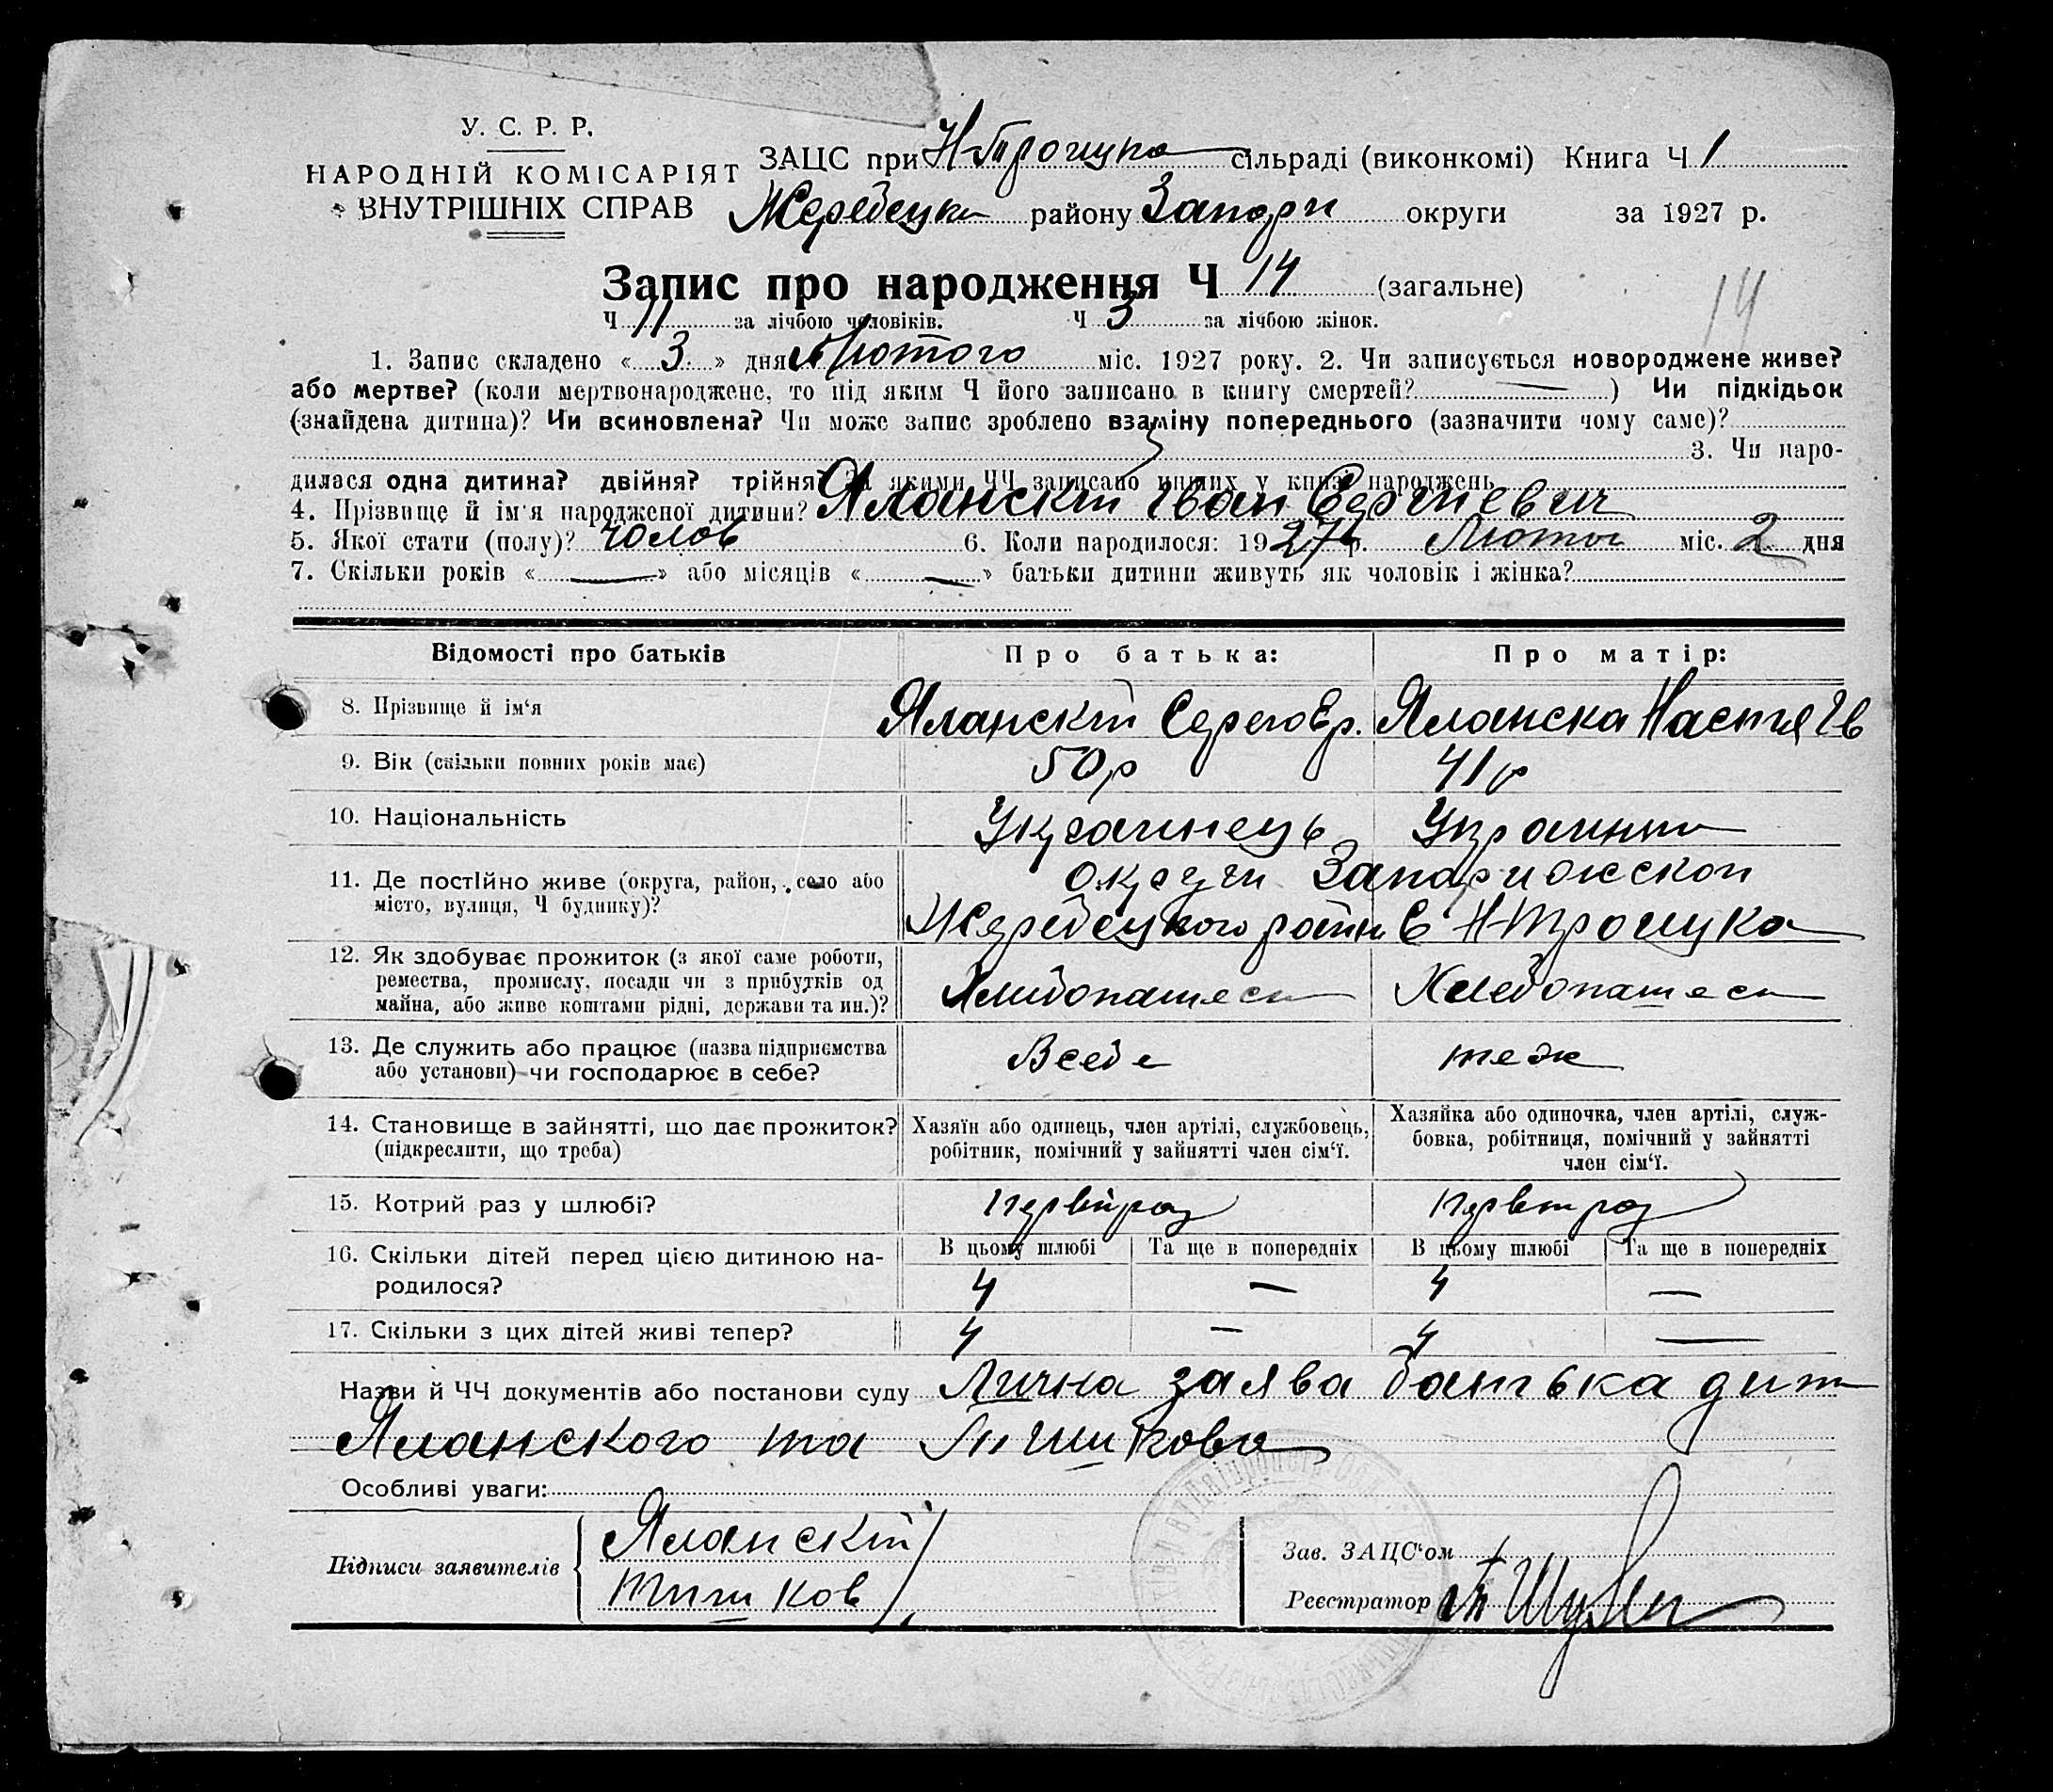 У. С. Р. Р.
НАРОДНІЙ КОМІСАРІЯТ
ВНУТРІШНІХ СПРАВ
ЗАЦС при Н-Троицка сільраді (виконкомі) Книга Ч 1
Жеребецки району Запори округи за 1927 р.
Запис про народження Ч 14 (загальне)
14
Ч 11 за лічбою чоловіків. Ч 3 за лічбою жінок.
1. Запис складено « 3 » дня Лютого міс. 1927 року. 2. Чи записується новороджене живе?
або мертве? (коли мертвонароджене, то під яким Ч його записано в книгу смертей? — ) Чи підкідьок
(знайдена дитина)? Чи всиновлена? Чи може запис зроблено взаміну попереднього (зазначити чому саме)?
3. Чи наро-
дилася одна дитина? двійня? трійня? За якими ЧЧ записано инших у книзі народжень
4. Прізвище й ім'я народженої дитини? Яланскій Іван Сергиевич
5. Якої стати (полу)? чолов 6. Коли народилося: 1927 р. Лютого міс. 2 дня
7. Скільки років « — » або місяців « — » батьки дитини живуть як чоловік і жінка?
Відомості про батьків Про батька: Про матір:
8. Прізвище й ім'я Яланскій Сергій Яланска Настя Ів
9. Вік (скільки повних років має) 50 р 41 р
10. Національність Украинець Украинка
11. Де постійно живе (округа, район, село або
місто, вулиця, Ч будинку)?
округи Запорижской
Жеребецкого район С Н-Троицка
12. Як здобуває прожиток (з якої саме роботи,
ремества, промислу, посади чи з прибутків од
майна, або живе коштами рідні, держави та ин.)?
Хлибопашеск Хлебопашеск
13. Де служить або працює (назва підприємства
або установи) чи господарює в себе?
Всебе теж
14. Становище в зайнятті, що дає прожиток?
(підкреслити, що треба)
Хазяїн або одинець, член артілі, службовець,
робітник, помічний у зайнятті член сім'ї.
Хазяйка або одиночка, член артілі, служ-
бовка, робітниця, помічний у зайнятті
член сім'ї.
15. Котрий раз у шлюбі? первій раз первий раз
16. Скільки дітей перед цією дитиною на-
родилося?
В цьому шлюбі Та ще в попередніх В цьому шлюбі Та ще в попередніх
4 — 4 —
17. Скільки з цих дітей живі тепер? 4 — 4 —
Назви й ЧЧ документів або постанови суду Лична заява батька дит
Яланского та Тишкова
Особливі уваги:
Підписи заявителів
Яланскій
Тишков
Зав. ЗАЦС'ом
Реєстратор